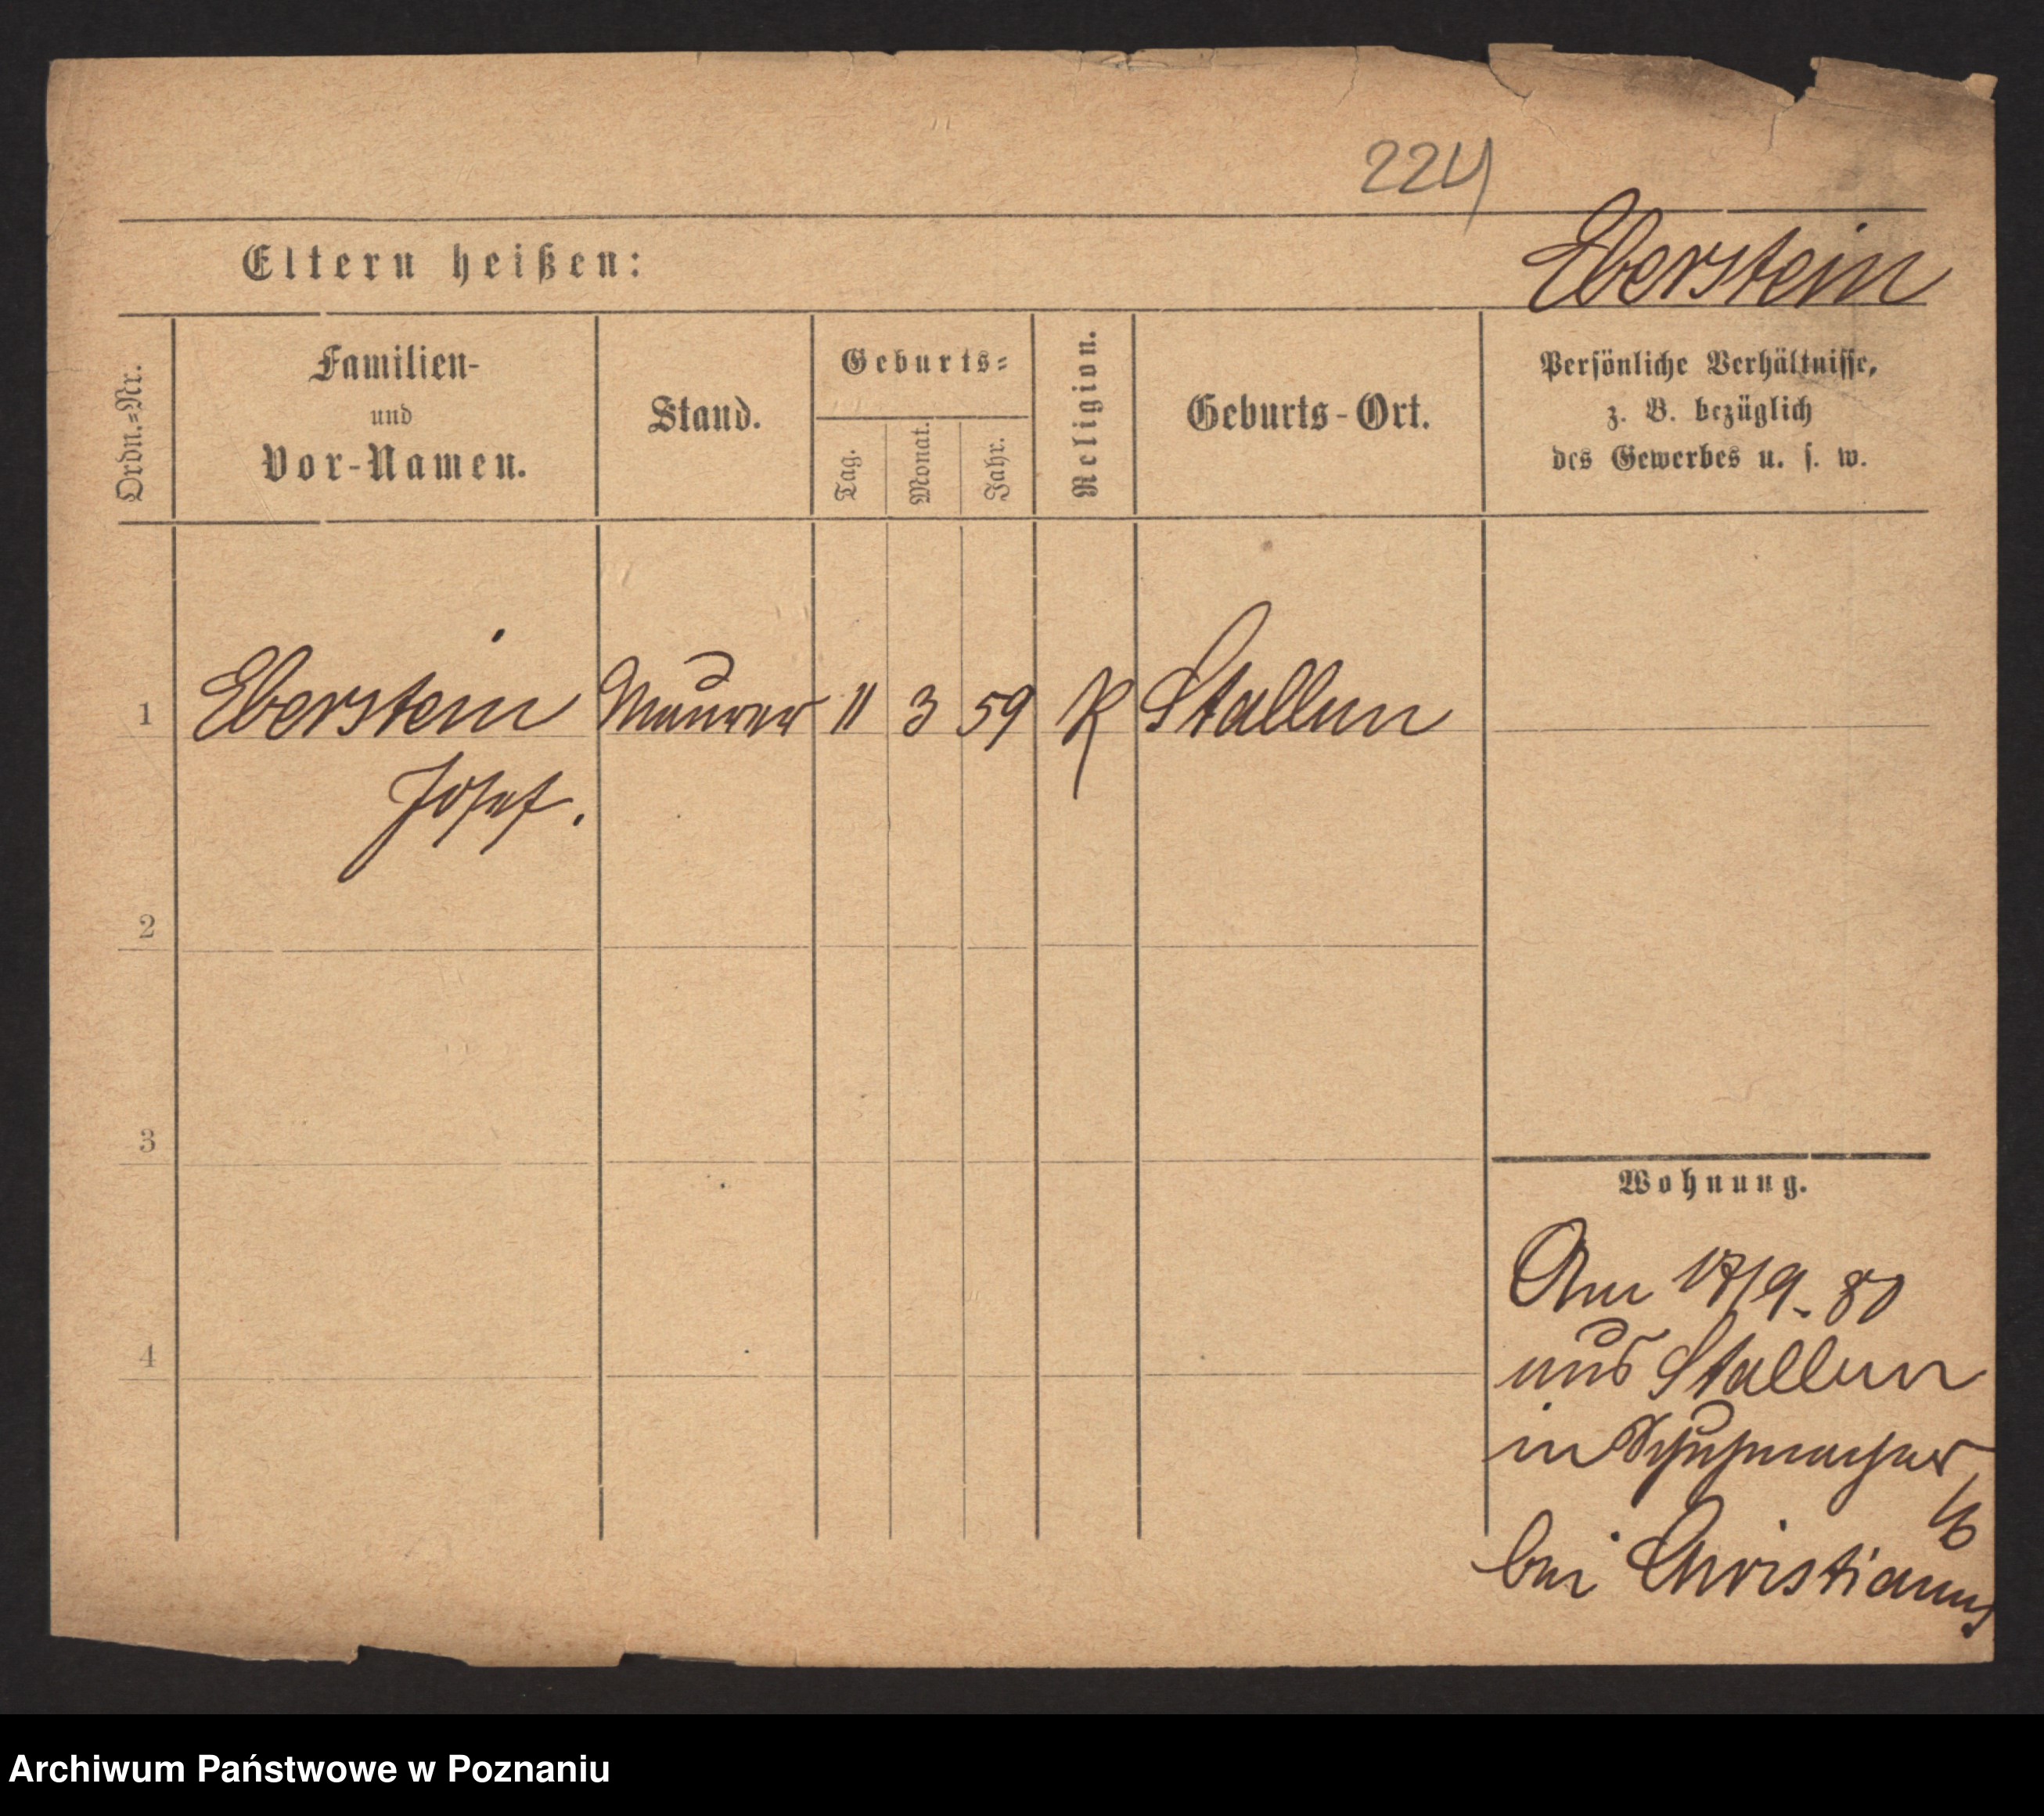 224
Eltern heißen:
Eberstein
Ordn.=Nr.
Familien-
und
Vor-Namen.
Stand.
Geburts=
Tag.
Monat.
Jahr.
Religion.
Geburts-Ort.
Persönliche Verhältnisse,
z. B. bezüglich
des Gewerbes u. s. w.
1 Eberstein Maurer 11 3 59 K Stallun
Josef.
2
3
4
Wohnung.
Am 17/9. 80
aus Stallun
in
bei Christians
Archiwum Państwowe w Poznaniu